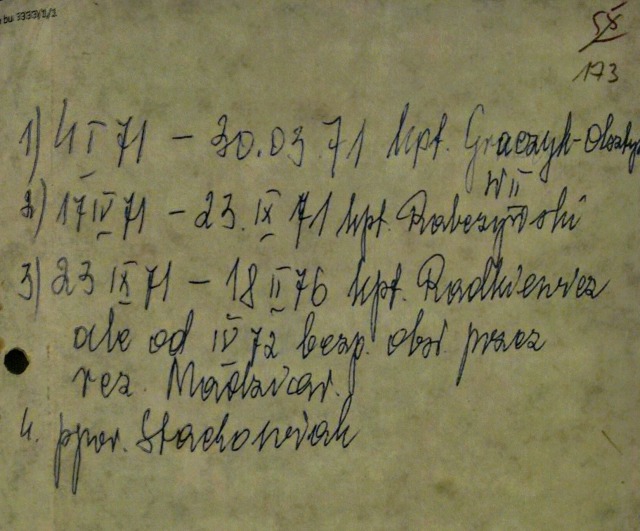 58
173
1) 4 I 71 – 30.03.71 kpt. Graczyk-Olszty
W II
2) 17 IV 71 – 23. IX 71 kpt. Rabczyński
3) 23 IX 71 – 18 II 76 kpt. Radkiewicz
ale od IV 72 bezp. obsł. przez
rez. Madziar.
4. ppor. Stachowiak